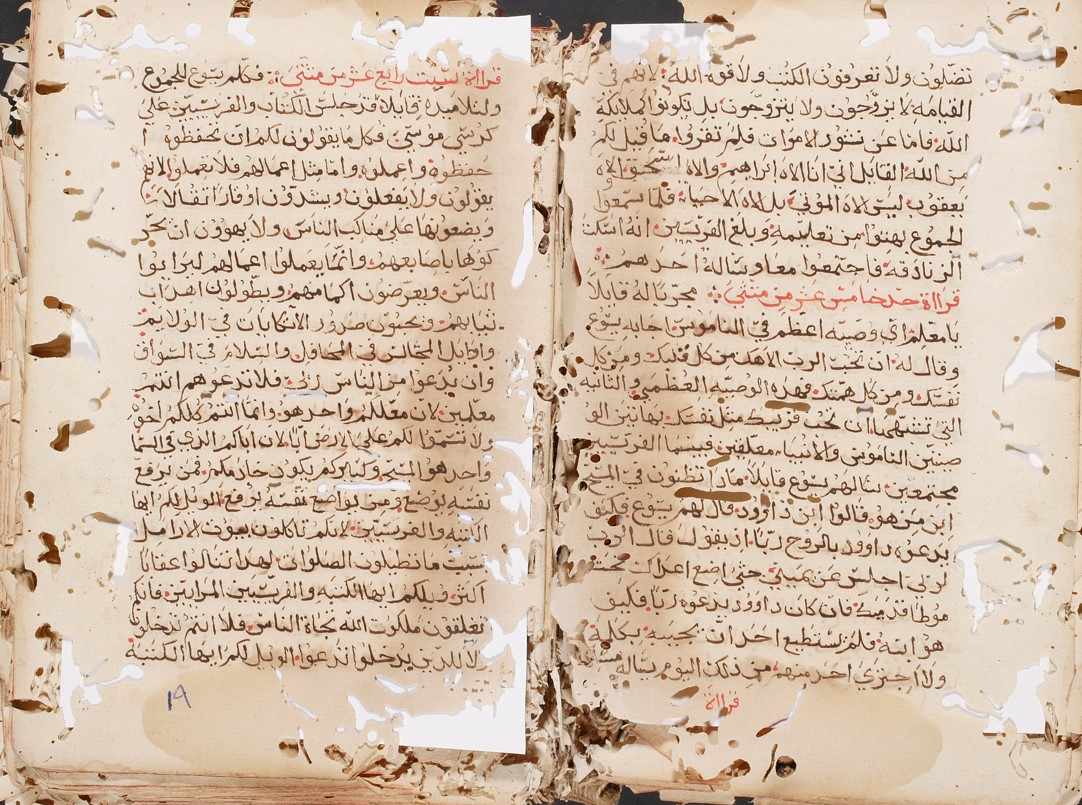 تضلون ولا تعرفون الكتب ولا قوة الله لانهم في
القيامه لا يزوجون ولا يتزوجون بل يكونوا كملائكة
الله فاما عن نشور الاموات فلم تقروا ما قيل لكم
من الله القايل اني انا الاه ابراهيم والاه اسحق والاه
يعقوب ليس الاه الموتي بل الاه الاحيا فلما سمعوا
الجموع بهتوا من تعليمه وبلغ الفريسين انه اسكت
الزنادقه فاجتمعوا معا وساله احدهم
قرااة حد خامس عشر من متتي مجربا له قايلا
يا معلم اي وصيه اعظم في الناموس اجابه يسوع
وقال له ان تحب الرب الاهك من كل قلبك ومن كل
نفسك ومن كل همتك فهذه الوصيه العظمي والثانيه
التي تشبهها ان تحب قريبك مثل نفسك بهاتين الو
صيتين الناموس والانبيا معلقين فبينما الفريسيين
مجتمعين سالهم يسوع قايلا ماذا تظنون في المسيح
ابن من هو قالوا ابن داوود قال لهم يسوع فكيف
يدعوه داوود بالروح ربا اذ يقول قال الرب
لربي اجلس عن يميني حتي اضع اعداك تحت
موطا قدميك فان كان داوود يدعوه ربا فكيف
هو ابنه فلم يستطيع احد ان يجيبه بكلمة
ولا اجتري احد منهم من ذلك اليوم يساله
قرااة
قرااة لسبت رابع عشر من متتي فكلم يسوع للجموع
ولتلاميذه قايلا قد جلس الكتاب والفريسيين علي
كرسي موسي فكل ما يقولون لكم ان تحفظوه
احفظوه واعملوه واما مثل اعمالهم فلا تعملوا لانهم
يقولون ولا يفعلون ويشدون اوقارا ثقالا
ويضعونها علي مناكب الناس ولا يهوون ان يحر
كوها باصابعهم وانما يعملوا اعمالهم ليرايوا
الناس ويعرضون اكمامهم ويطولون اهداب
ثيابهم ويحبون صدور الاتكايات في الولايم
واوايل المجالس في المحافل والسلام في السواق
وان يدعوا من الناس ربي فلا تدعوهم انتم
معلمين لان معلمكم واحد هو وانما انتم كلكم اخوه
ولا تسموا لكم علي الارض ابا لان اباكم الذي في السما
واحد هو المسيح وكبيركم يكون خادمكم فمن يرفع
نفسه يوضع ومن يواضع نفسه يرفع الويل لكم ايها
الكتبه والفريسيين لانكم تاكلون بيوت الارامل
بسبب ما تطيلون الصلوات لهذا تنالوا عقابا
اكثر ويلكم ايها الكتبه والفريسيين المرايين فانكم
تغلقون ملكوت الله تجاة الناس فلا انتم تدخلوا
ولا للذين يدخلوا تدعوا الويل لكم ايها الكتبة
١٩